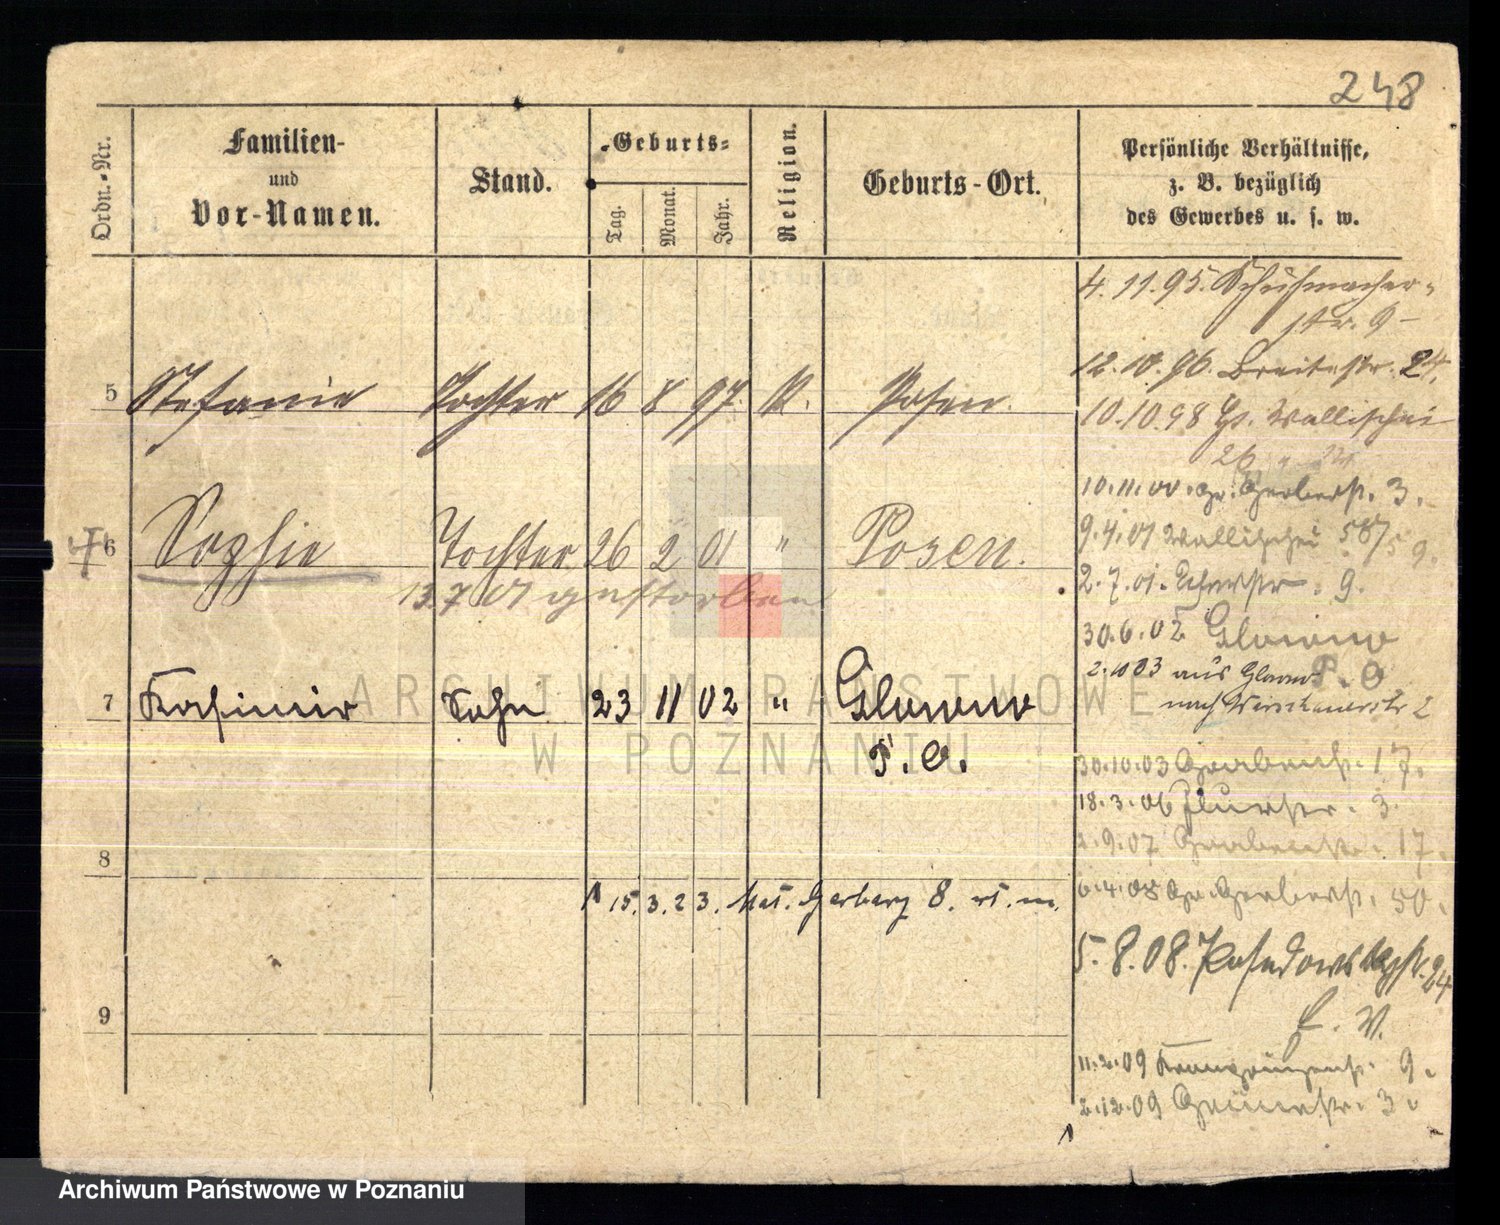 248
Ordn.-Nr.
Familien-
und
Vor-Namen.
Stand.
Geburts-
Tag.
Monat.
Jahr.
Religion.
Geburts-Ort.
Persönliche Verhältnisse,
z. B. bezüglich
des Gewerbes u. s. w.
4. 11. 95. Schuhmacher-
str. 9
12. 10. 96. Breitestr. 24.
5 Stefanie Tochter 16 8 97 K. Posen
10.10.98 Gr. Wallischei
26
10.11.00. Gr. Gerberstr. 3.
6 Sophie Tochter 26 2 01 " Posen.
9.4.01 Wallischei 58/59.
13 7 01 gestorben
2.7.01. 9.
30.6.02 Glowno
P. O
2.10 03 aus Glowno
nach Warschauerstr 2
7 Kasimir Sohn 23 11 02 " Glowno
P. O.
30.10.03 Grabenstr. 17.
18.3.06 Flurstr. 3.
2.9.07 Grabenstr. 17.
8
6.4.08 Gr. Gerberstr. 50.
15.3.23. Gerbary 8.
5.8.08. Posadowskystr. 24
E. V.
9
11.2.09 9.
2.12.09 Grünestr. 3.
ARCHIWUM PAŃSTWOWE
W POZNANIU
Archiwum Państwowe w Poznaniu